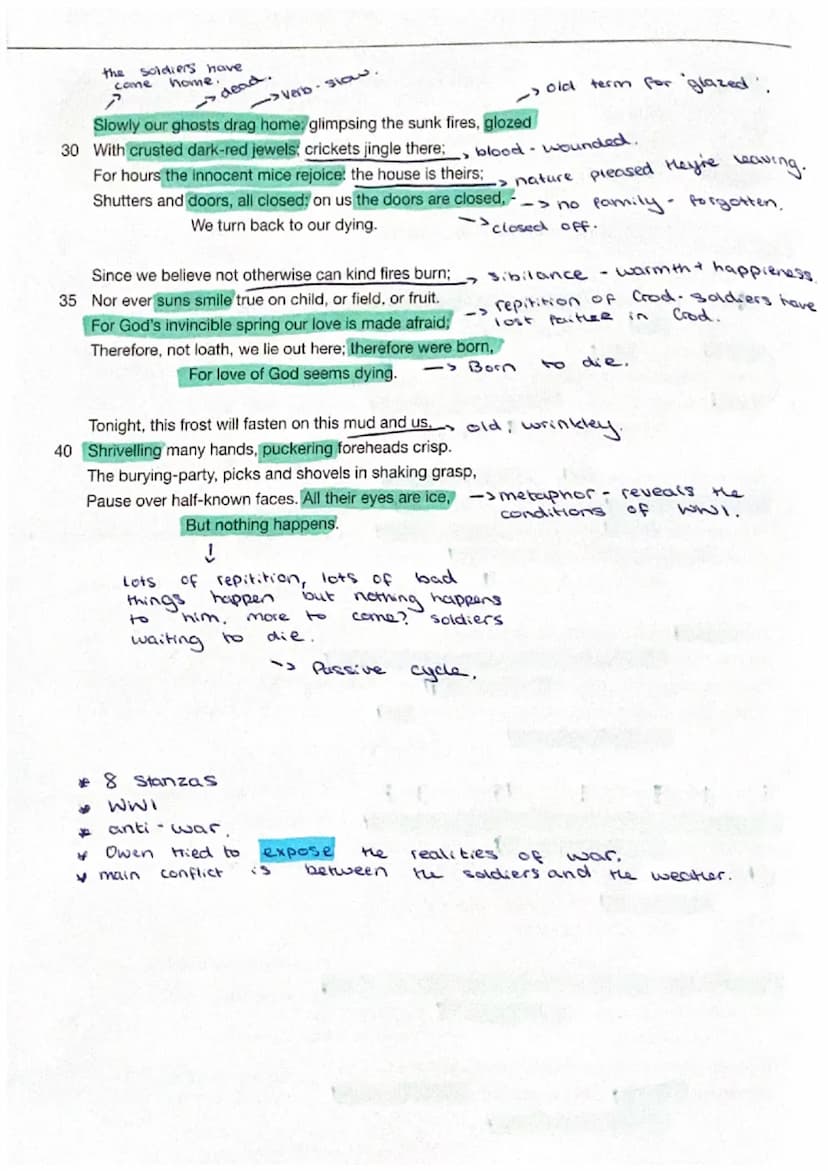 the soldiers have
come home.
→ dead.
→ verb - slow.
→ old term for 'glazed'.
Slowly our ghosts drag home: glimpsing the sunk fires, glozed
30 With crusted dark-red jewels; crickets jingle there;
→ blood - wounded.
For hours the innocent mice rejoice: the house is theirs;
→ nature pleased they're leaving.
Shutters and doors, all closed: on us the doors are closed, -
→ no family - forgotten.
We turn back to our dying.
→ closed off.
Since we believe not otherwise can kind fires burn;
→ sibilance - warmth + happieness
35 Nor ever suns smile true on child, or field, or fruit.
For God's invincible spring our love is made afraid;
→ repitition of God. Soldiers have
lost faithe in God.
Therefore, not loath, we lie out here; therefore were born,
For love of God seems dying.
→ Born to die.
Tonight, this frost will fasten on this mud and us,
→ old, wrinkley.
40 Shrivelling many hands, puckering foreheads crisp.
The burying-party, picks and shovels in shaking grasp,
Pause over half-known faces. All their eyes are ice,
→ metaphor - reveals the
conditions of WW1.
But nothing happens.
↓
Lots of repitition, lots of bad
things happen but nothing happens
to him, more to come? soldiers
waiting to die.
→ Passive cycle.
* 8 Stanzas
* WW1
* anti-war.
* Owen tried to expose the realities of war.
* main conflict is between the soldiers and the weather.